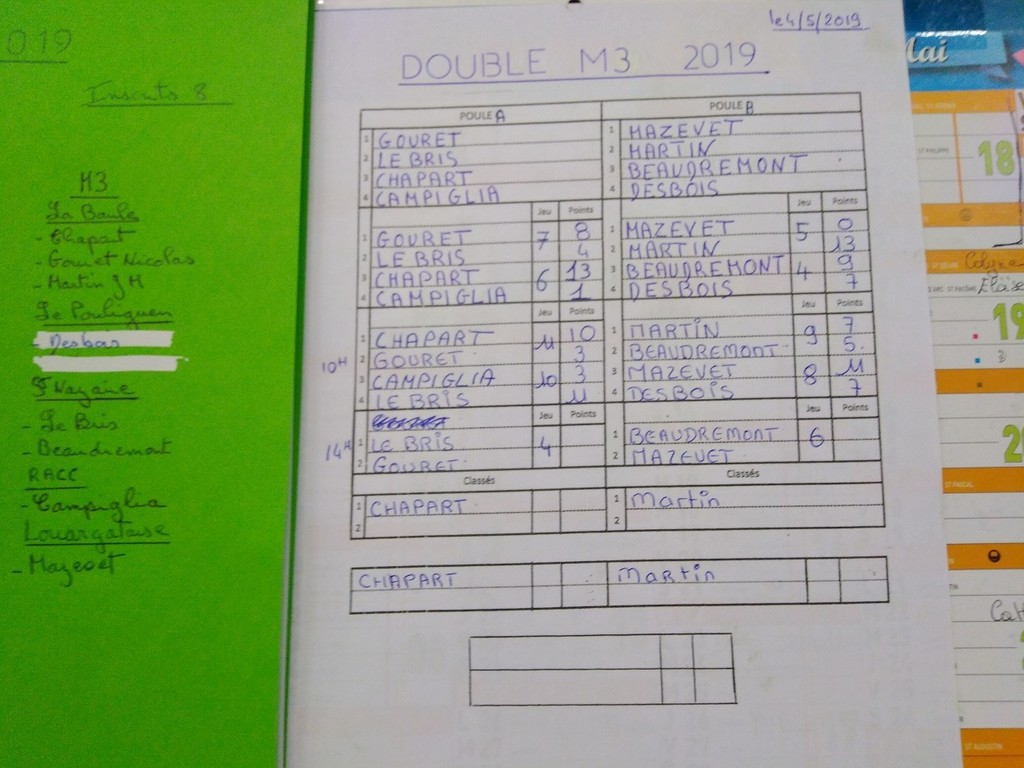 019
Inscrits 8
M3
La Baule
- Chapart
- Gouret Nicolas
- Martin J M
Le Pouliguen
- Desbois
St Nazaire
- Le Bris
- Beaudremont
RACC
- Campiglia
Louargataise
- Mazevet
le 4/5/2019
DOUBLE M3 2019
POULE A POULE B
1 GOURET 1 MAZEVET
2 LE BRIS 2 MARTIN
3 CHAPART 3 BEAUDREMONT
4 CAMPIGLIA 4 DESBOIS
Jeu Points Jeu Points
1 GOURET 7 8 1 MAZEVET 5 0
2 LE BRIS 4 2 MARTIN 13
3 CHAPART 6 13 3 BEAUDREMONT 4 9
4 CAMPIGLIA 1 4 DESBOIS 7
Jeu Points Jeu Points
1 CHAPART 11 10 1 MARTIN 9 7
10H 2 GOURET 3 2 BEAUDREMONT 5
3 CAMPIGLIA 10 3 3 MAZEVET 8 11
4 LE BRIS 11 4 DESBOIS 7
Jeu Points
14H 1 LE BRIS 4 1 BEAUDREMONT 6
2 GOURET 2 MAZEVET
Classés Classés
1 CHAPART 1 Martin
2 2
CHAPART Martin
Mai
18
Eloïse
19
3
2
ST PASCAL
ST AUGUSTIN